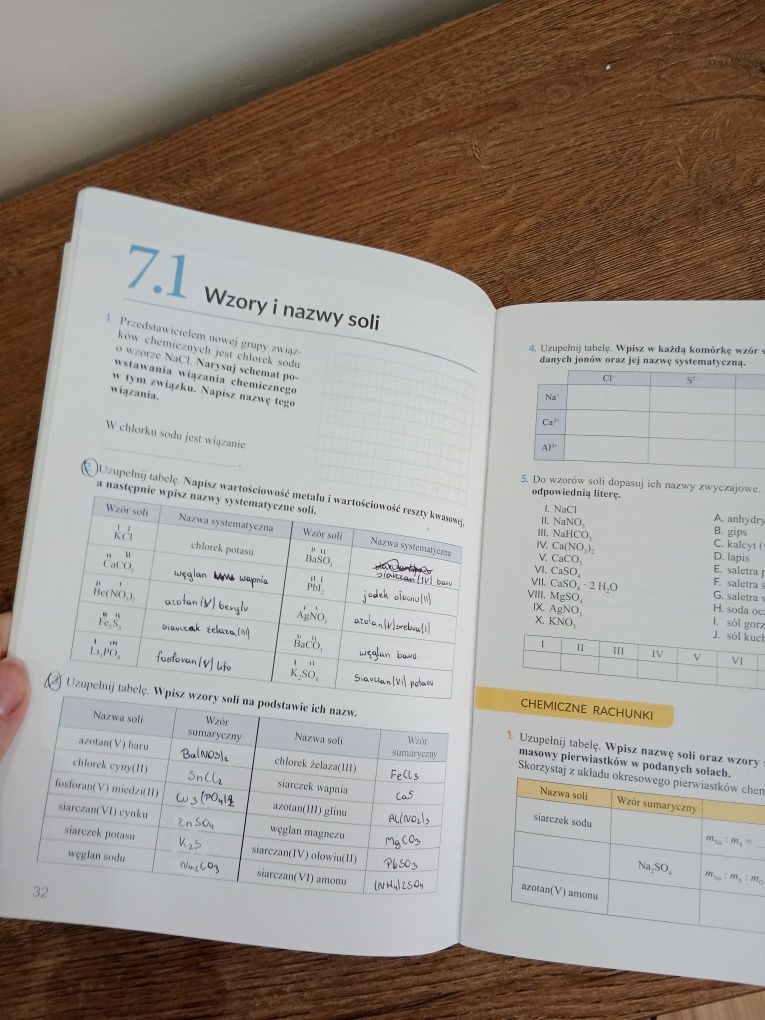 7.1 Wzory i nazwy soli
1. Przedstawicielem nowej grupy związ-
ków chemicznych jest chlorek sodu
o wzorze NaCl. Narysuj schemat po-
wstawania wiązania chemicznego
w tym związku. Napisz nazwę tego
wiązania.
W chlorku sodu jest wiązanie
2. Uzupełnij tabelę. Napisz wartościowość metalu i wartościowość reszty kwasowej,
a następnie wpisz nazwy systematyczne soli.
Wzór soli Nazwa systematyczna Wzór soli Nazwa systematyczna
I I
KCl chlorek potasu
II II
BaSO₃ siarczan(IV) baru
II II
CaCO₃ węglan wapnia
II I
PbI₂ jodek ołowiu(II)
II I
Be(NO₃)₂ azotan(V) berylu
I I
AgNO₃ azotan(V) srebra(I)
III II
Fe₂S₃ siarczek żelaza(III)
II II
BaCO₃ węglan baru
I III
Li₃PO₄ fosforan(V) litu
I II
K₂SO₄ siarczan(VI) potasu
Uzupełnij tabelę. Wpisz wzory soli na podstawie ich nazw.
Nazwa soli Wzór sumaryczny Nazwa soli Wzór sumaryczny
azotan(V) baru Ba(NO3)2 chlorek żelaza(III) FeCl3
chlorek cyny(II) SnCl2 siarczek wapnia CaS
fosforan(V) miedzi(II) Cu3(PO4)2 azotan(III) glinu Al(NO2)3
siarczan(VI) cynku ZnSO4 węglan magnezu MgCO3
siarczek potasu K2S siarczan(IV) ołowiu(II) PbSO3
węglan sodu Na2CO3 siarczan(VI) amonu (NH4)2SO4
32
4. Uzupełnij tabelę. Wpisz w każdą komórkę wzór s
danych jonów oraz jej nazwę systematyczną.
Cl⁻ S²⁻
Na⁺
Ca²⁺
Al³⁺
5. Do wzorów soli dopasuj ich nazwy zwyczajowe.
odpowiednią literę.
I. NaCl
II. NaNO₃
III. NaHCO₃
IV. Ca(NO₃)₂
V. CaCO₃
VI. CaSO₄
VII. CaSO₄ · 2 H₂O
VIII. MgSO₄
IX. AgNO₃
X. KNO₃
A. anhydry
B. gips
C. kalcyt (
D. lapis
E. saletra p
F. saletra s
G. saletra w
H. soda oc
I. sól gorz
J. sól kuch
I II III IV V VI
CHEMICZNE RACHUNKI
1. Uzupełnij tabelę. Wpisz nazwę soli oraz wzory
masowy pierwiastków w podanych solach.
Skorzystaj z układu okresowego pierwiastków chem
Nazwa soli Wzór sumaryczny
siarczek sodu m Na : m S =
Na₂SO₄ m Na : m S : m O
azotan(V) amonu